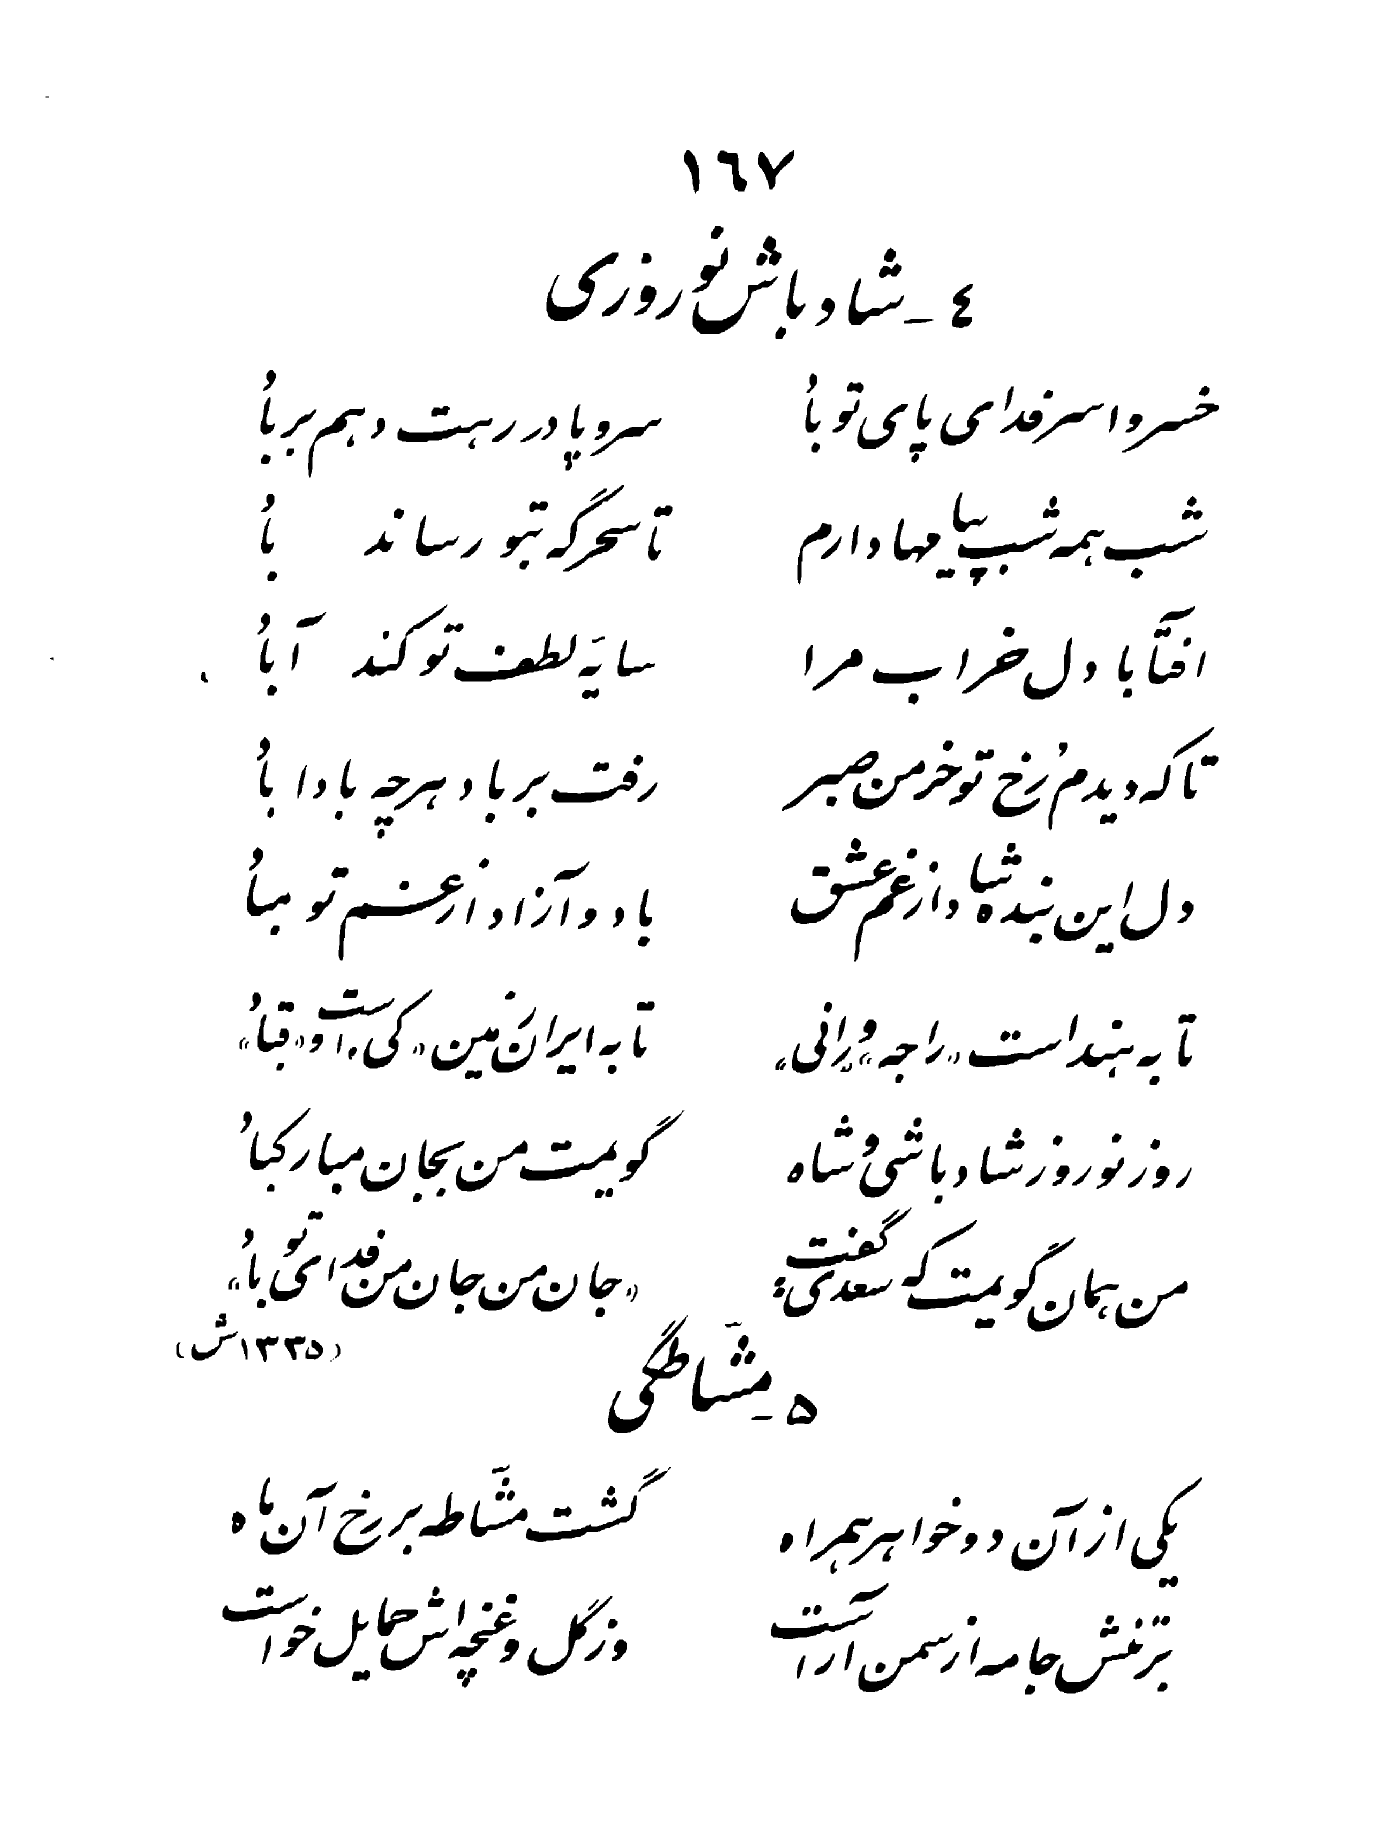 ١٦٧
٤ - شاد باش نوروزی
خسروا سر فدای پای تو باد سر و پا در رهت دهم بر باد
شب همه شب پیامها دارم تا سحرگه بتو رساند باد
افتآبا دل خراب مرا سایهٔ لطف تو کند آباد
تا که دیدم رُخ تو خرمن صبر رفت بر باد هرچه بادا باد
دل این بنده شاد از غم عشق باد و آزاد از غم تو مباد
تا به هند است «راجه» و «رانی» تا به ایران زمین «کی» است و «قباد»
روز نوروز شاد باشی و شاه گویمت من بجان مبارکباد
من همان گویمت که سعدی گفت: «جان من جان من فدای تو باد»
(۱۳۳۵ش)
۵ - مشّاطگی
یکی از آن دو خواهر همراه گشت مشّاطه بر رخ آن ماه
بر تنش جامه از سمن آراست وز گل و غنچه اش حمایل خواست